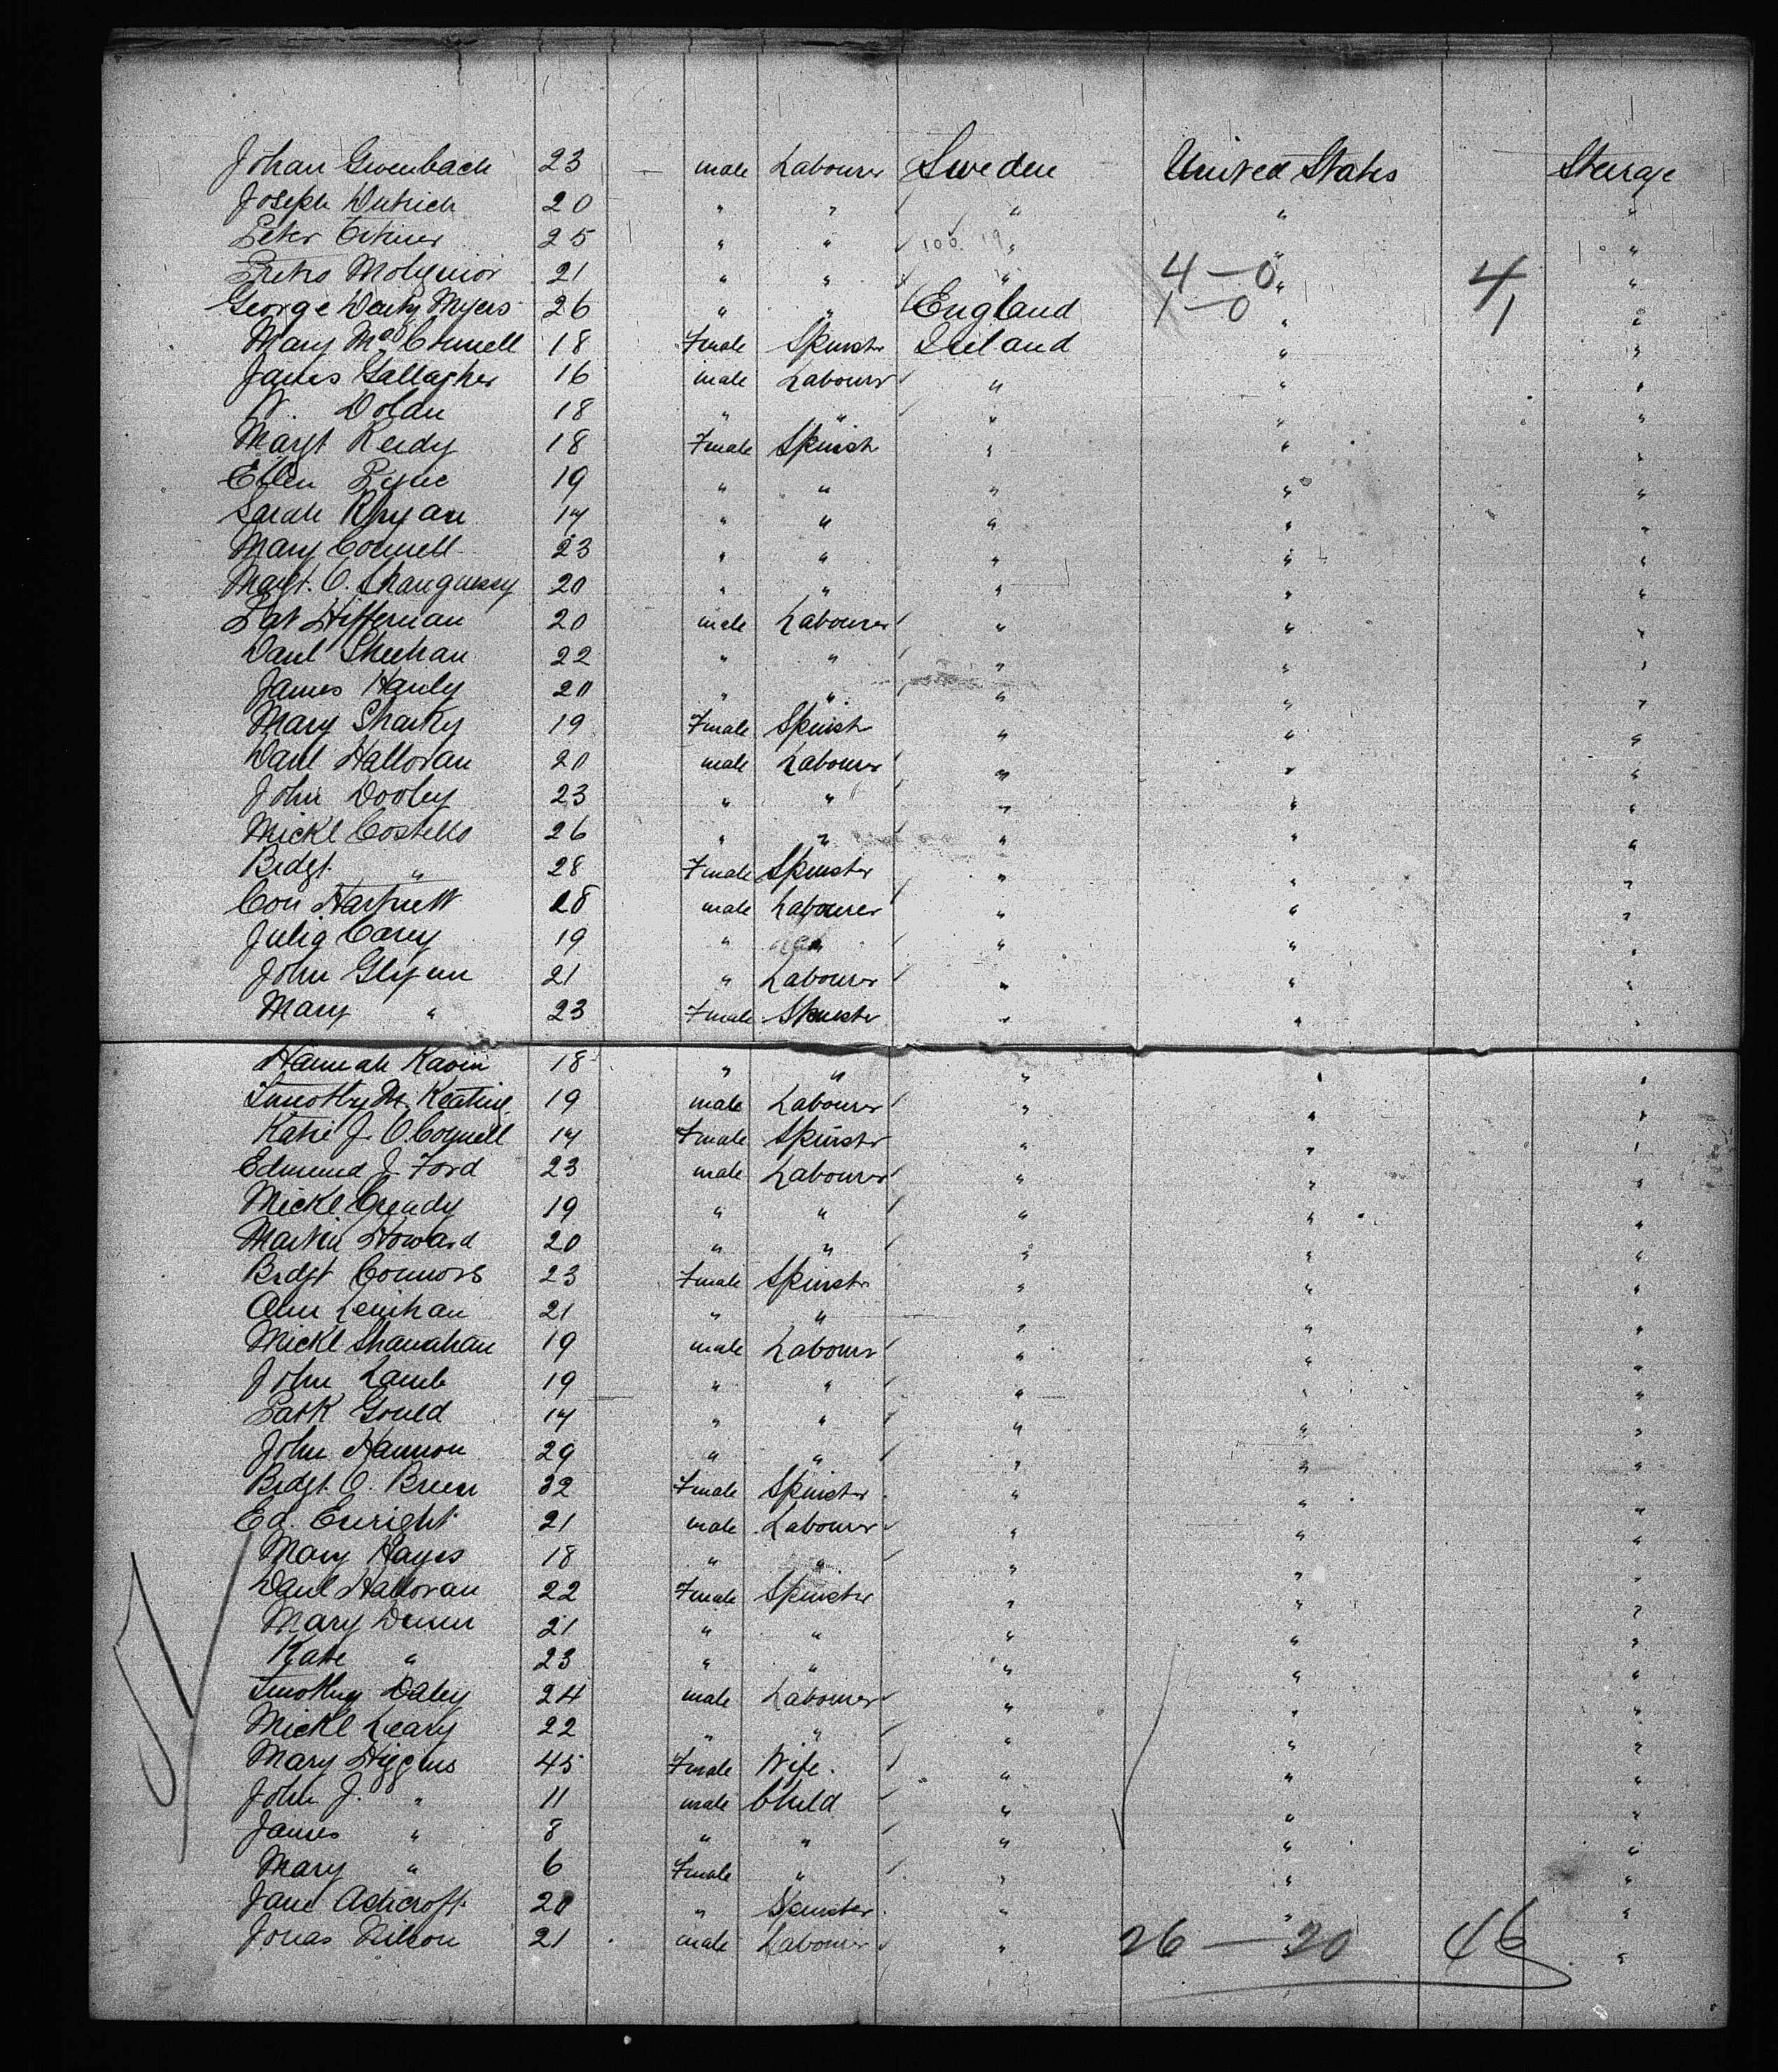 Johan Gwenbach 23 male Labourer Sweden United States Steerage
Joseph Dutrich 20 " " " " "
Peter 25 " " " " "
21 " " " 4-0 " 4 "
George Myers 26 " " England 1-0 " 1 "
Mary McConnell 18 Female Spinstr Ireland " "
James Gallagher 16 male Labourr " " "
W. Dolan 18 " " " " "
Margt Reidy 18 Female Spinstr " " "
Ellen Pyne 19 " " " " "
Sarah Rhyan 17 " " " " "
Mary Connell 23 " " " " "
Margt. O. Shanguessy 20 " " " " "
Pat Hiffernan 20 male Labourer " " "
Danl Sheehan 22 " " " " "
James Hanly 20 " " " " "
Mary Sharky 19 Female Spinstr " " "
Danl Halloran 20 male Labourer " " "
John Dooley 23 " " " " "
Mickl Costello 26 " " " " "
Bridgt. " 28 Female Spinster " " "
Con Hartnett 28 male Labourer " " "
Julia Carey 19 " " " " "
John Glynn 21 " Labourer " " "
Mary " 23 Female Spinster " " "
Hannah Kavin 18 " " " " "
Timothy M. Keating 19 male Labourer " " "
Katie J. O.Connell 17 Female Spinstr " " "
Edmund J. Ford 23 male Labourer " " "
Mickl Cready 19 " " " " "
Martin Howard 20 " " " " "
Bridgt Connors 23 Female Spinstr " " "
Ann Lenihan 21 " " " " "
Mickl Shanahan 19 male Labourr " " "
John Lamb 19 " " " " "
Patk Gould 17 " " " " "
John Hannon 29 " " " " "
Bridgt. O. Brien 22 Female Spinster " " "
Ed. Enright 21 male Labourer " " "
Mary Hayes 18 " " " " "
Danl Halloran 22 Female Spinster " " "
Mary Dunn 21 " " " " "
Kate " 23 " " " " "
Timothy Daley 24 male Labourer " " "
Mickl Leary 22 " " " " "
Mary Higgins 45 Female Wife. " " "
John J. " 11 male Child " " "
James " 8 " " " " "
Mary " 6 Female " " " "
Jane Ashcroft 20 " Spinster " " "
Jonas Nilson 21 male Labourer " 26-20 " 46 "